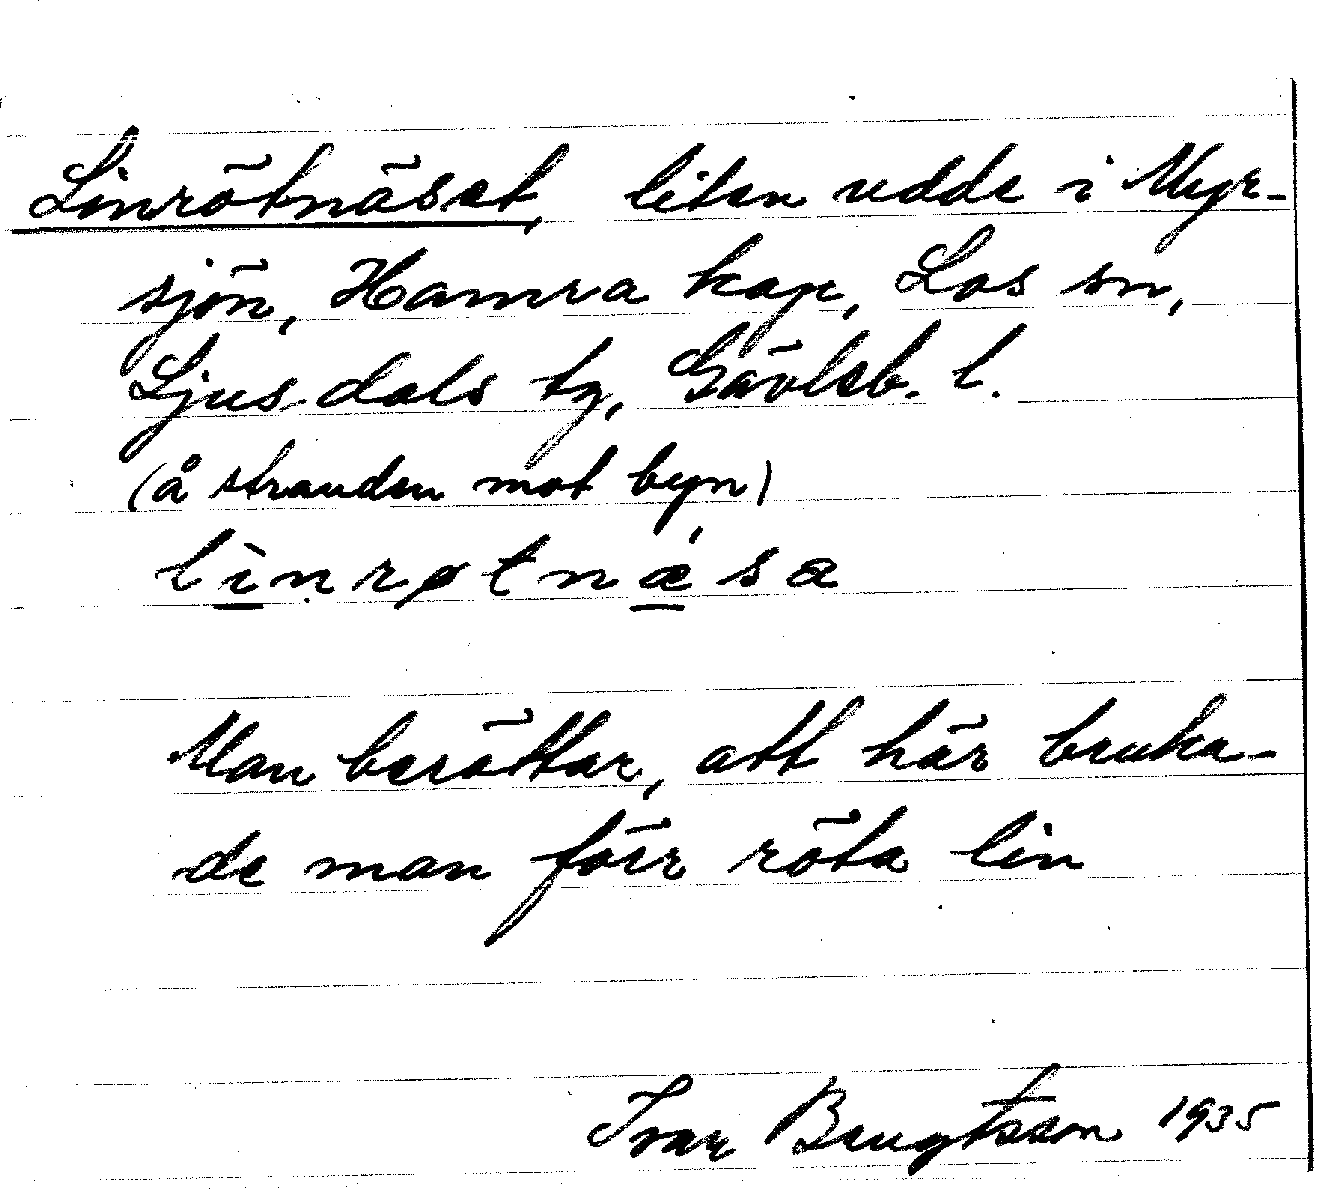 Linrötnäset, liten udde i Myr-
sjön, Hamra kap, Los sn,
Ljusdals tg, Gävleb. l.
(å stranden mot byn)
lìnrøtnǽsa
Man berättar, att här bruka-
de man förr röta lin
Ivar Bengtsson 1935